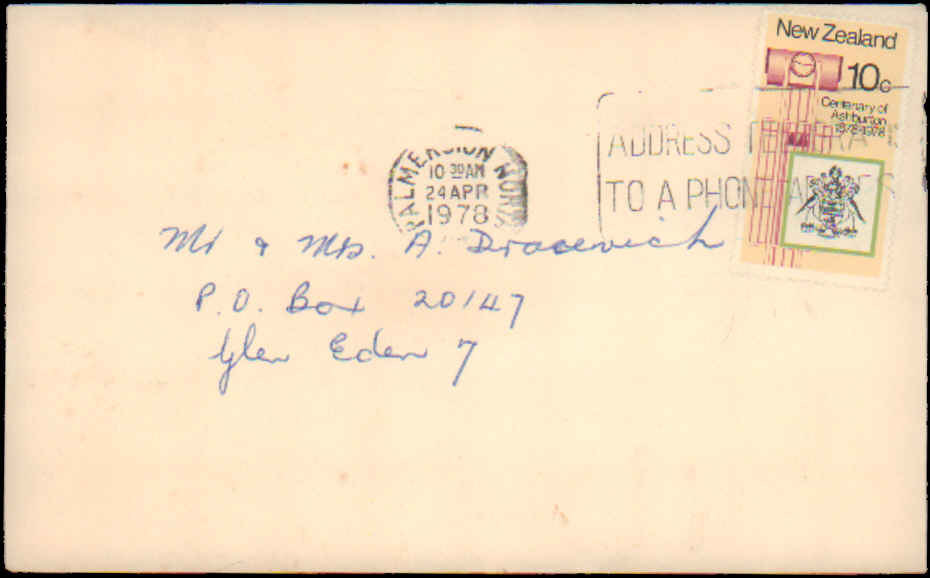 New Zealand
10c
Centenary of
Ashburton
1878-1978
ADDRESS
TO A PHONE
PALMERSTON NORTH
10 30 AM
24 APR
1978
Mr & Mrs. A. Dracevich
P.O. Box 20147
Glen Eden 7